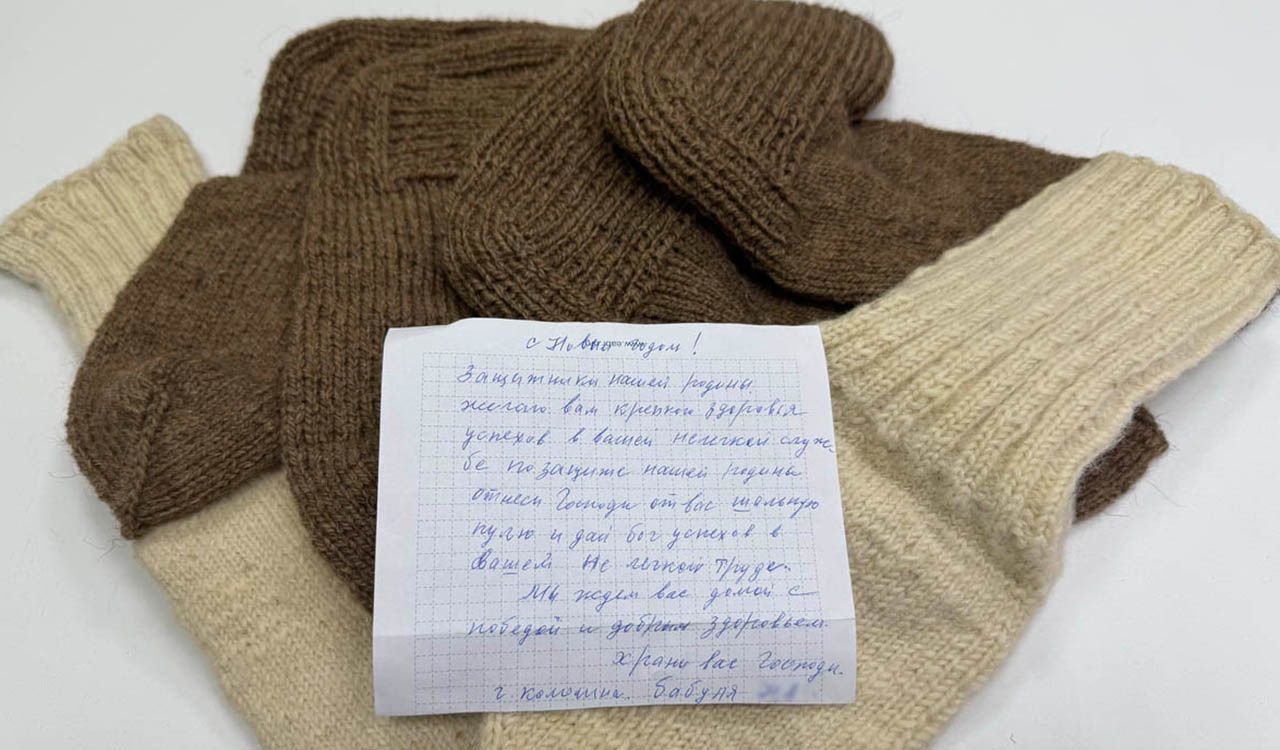 с Новым годом!
Защитники нашей родины
желаю вам крепкой здоровья
успехов в вашей нелегкой служ
бе по защите нашей родины
отнеси Господи от вас шальную
пулю и дай бог успехов в
вашем не легком труде.
Мы ждем вас домой с
победой и добрым здоровьем.
храни вас Господи.
г коломна. бабуля